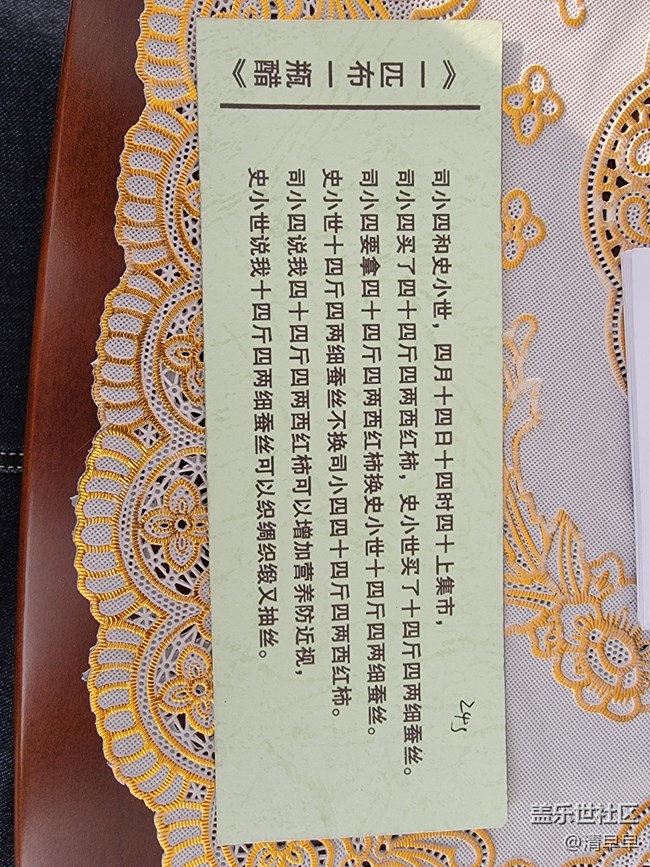 《一匹布一瓶醋》
司小四和史小世，四月十四日十四时四十上集市，
司小四买了四十斤四两西红柿，史小世买了十四斤四两细蚕丝。
司小四要拿四十斤四两西红柿换史小世十四斤四两细蚕丝。
史小世十四斤四两细蚕丝不换司小四四十斤四两西红柿。
司小四说我四十斤四两西红柿可以增加营养防近视，
史小世说我十四斤四两细蚕丝可以织绸织缎又抽丝。
24s
盖乐世社区
@清早早